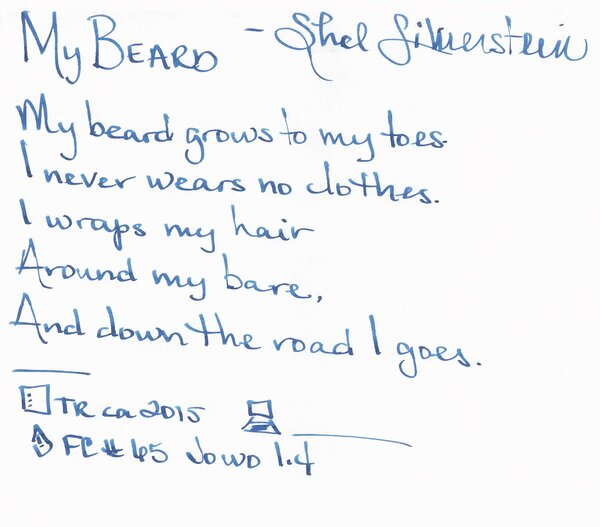 My BEARD - Shel Silverstein
My beard grows to my toes.
I never wears no clothes.
I wraps my hair
Around my bare,
And down the road I goes.
TR ca 2015
FC# 45 Jowo 1.4